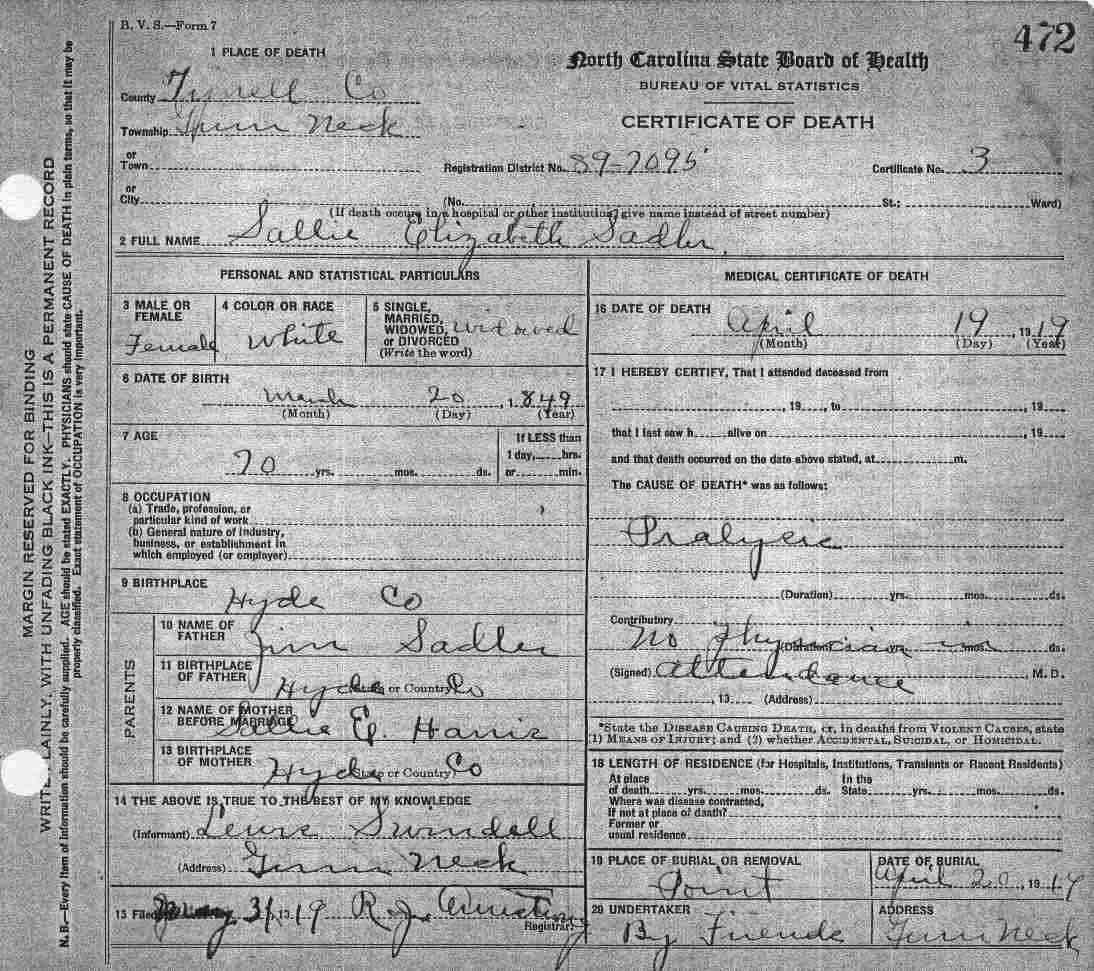 B. V. S.—Form 7
472
1 PLACE OF DEATH
County Tyrrell Co
Township Gum Neck
or
Town
or
City
North Carolina State Board of Health
BUREAU OF VITAL STATISTICS
CERTIFICATE OF DEATH
Registration District No. 89-7095 Certificate No. 3
(No. St.; Ward)
(If death occurs in a hospital or other institution, give name instead of street number)
2 FULL NAME Sallie Elizabeth Sadler
PERSONAL AND STATISTICAL PARTICULARS
3 MALE OR FEMALE
Female
4 COLOR OR RACE
White
5 SINGLE,
MARRIED,
WIDOWED, widowed
or DIVORCED
(Write the word)
6 DATE OF BIRTH
March 20, 1849
(Month) (Day) (Year)
7 AGE
70 yrs. mos. ds.
If LESS than
1 day, hrs.
or min.
8 OCCUPATION
(a) Trade, profession, or
particular kind of work
(b) General nature of industry,
business, or establishment in
which employed (or employer)
9 BIRTHPLACE
Hyde Co
PARENTS
10 NAME OF
FATHER
Jim Sadler
11 BIRTHPLACE
OF FATHER
(State or Country)
Hyde Co
12 NAME OF MOTHER
BEFORE MARRIAGE
Sallie E. Harris
13 BIRTHPLACE
OF MOTHER
(State or Country)
Hyde Co
14 THE ABOVE IS TRUE TO THE BEST OF MY KNOWLEDGE
(Informant) Lewis Swindell
(Address) Gum Neck
15 Filed 31, 1919 R. J. Armstrong
Registrar.
MEDICAL CERTIFICATE OF DEATH
16 DATE OF DEATH
April 19 1919
(Month) (Day) (Year)
17 I HEREBY CERTIFY, That I attended deceased from
, 19 , to , 19
that I last saw h alive on , 19
and that death occurred on the date above stated, at m.
The CAUSE OF DEATH* was as follows:
Pralysic
(Duration) yrs. mos. ds.
Contributory
(Duration) yrs. mos. ds.
No Physician in
(Signed) attendance , M. D.
, 13 (Address)
*State the DISEASE CAUSING DEATH, or, in deaths from VIOLENT CAUSES, state
(1) MEANS OF INJURY; and (2) whether ACCIDENTAL, SUICIDAL, or HOMICIDAL.
18 LENGTH OF RESIDENCE (for Hospitals, Institutions, Transients or Recent Residents)
At place In the
of death yrs. mos. ds. State yrs. mos. ds.
Where was disease contracted,
If not at place of death?
Former or
usual residence
19 PLACE OF BURIAL OR REMOVAL
Point
DATE OF BURIAL
April 20, 1919
20 UNDERTAKER
By Friends
ADDRESS
Gum Neck
MARGIN RESERVED FOR BINDING
WRITE PLAINLY, WITH UNFADING BLACK INK—THIS IS A PERMANENT RECORD
N. B.—Every item of information should be carefully supplied. AGE should be stated EXACTLY. PHYSICIANS should state CAUSE OF DEATH in plain terms, so that it may be
properly classified. Exact statement of OCCUPATION is very important.